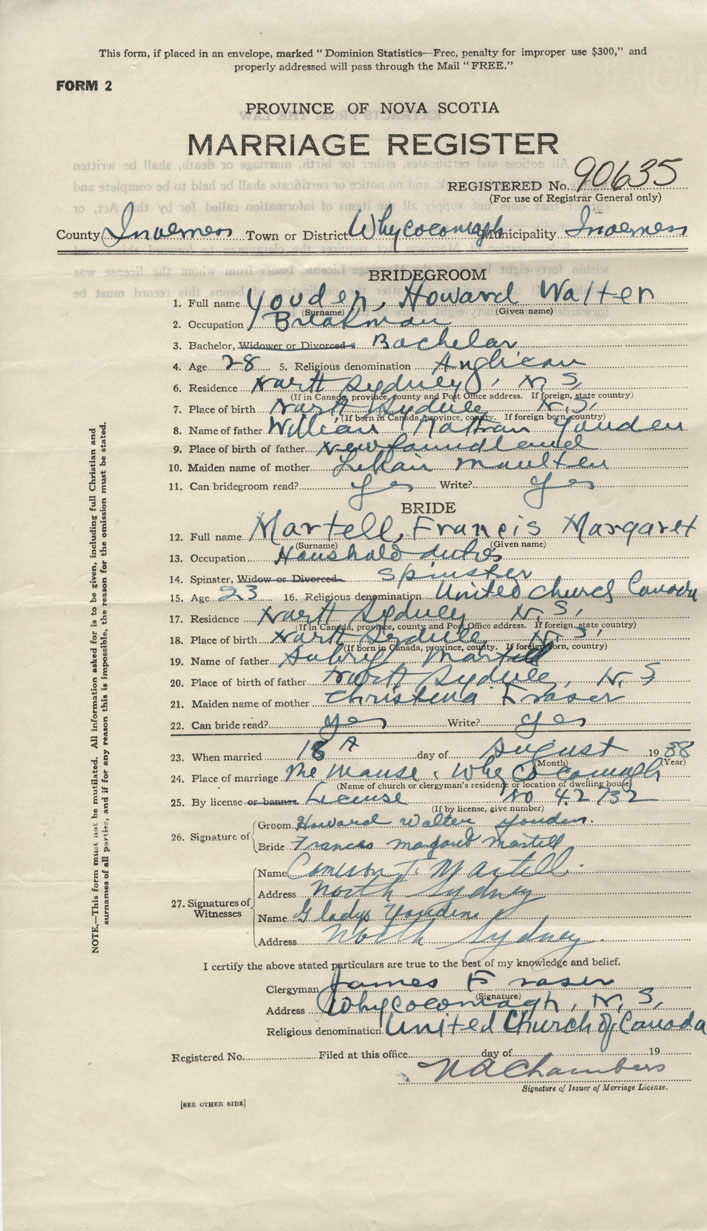 This form, if placed in an envelope, marked "Dominion Statistics—Free, penalty for improper use $300," and
properly addressed will pass through the Mail "FREE."
FORM 2
PROVINCE OF NOVA SCOTIA
MARRIAGE REGISTER
REGISTERED No. 90635
(For use of Registrar General only)
County Inverness Town or District Whycocomagh Municipality Inverness
BRIDEGROOM
1. Full name Youden, Howard Walter
(Surname) (Given name)
2. Occupation Brakman
3. Bachelor, Widower or Divorced Bachelar
4. Age 28 5. Religious denomination Anglican
6. Residence North Sydney, N S,
(If in Canada, province, county and Post Office address. If foreign, state country)
7. Place of birth North Sydney N.S,
(If born in Canada, province, county. If foreign born, country)
8. Name of father William Nathan Youden
9. Place of birth of father Newfoundland
10. Maiden name of mother Lilian Moulten
11. Can bridegroom read? Yes Write? Yes
BRIDE
12. Full name Martell, Francis Margaret
(Surname) (Given name)
13. Occupation Household duties
14. Spinster, Widow or Divorced Spinster
15. Age 23 16. Religious denomination United Church Canada
17. Residence North Sydney N. S,
(If in Canada, province, county and Post Office address. If foreign, state country)
18. Place of birth North Sydney N. S,
(If born in Canada, province, county. If foreign born, country)
19. Name of father Aubrey Martell
20. Place of birth of father North Sydney, N. S
21. Maiden name of mother Christena Fraser
22. Can bride read? Yes Write? Yes
23. When married 18th day of August 1938
(Month) (Year)
24. Place of marriage The Manse, Whycocomagh
(Name of church or clergyman's residence or location of dwelling house)
25. By license or banns License No 42732
(If by license, give number)
26. Signature of
Groom Howard Walter Youden.
Bride Frances Margaret Martell
27. Signatures of Witnesses
Name T. Martell.
Address North Sydney
Name Gladys Youden
Address North Sydney.
I certify the above stated particulars are true to the best of my knowledge and belief.
Clergyman James Fraser
(Signature)
Address Whycocomagh, N. S,
Religious denomination United Church of Canada
Registered No. Filed at this office day of 19
N A Chambers
Signature of Issuer of Marriage License.
[SEE OTHER SIDE]
NOTE.—This form must not be mutilated. All information asked for is to be given, including full Christian and
surnames of all parties, and if for any reason this is impossible, the reason for the omission must be stated.